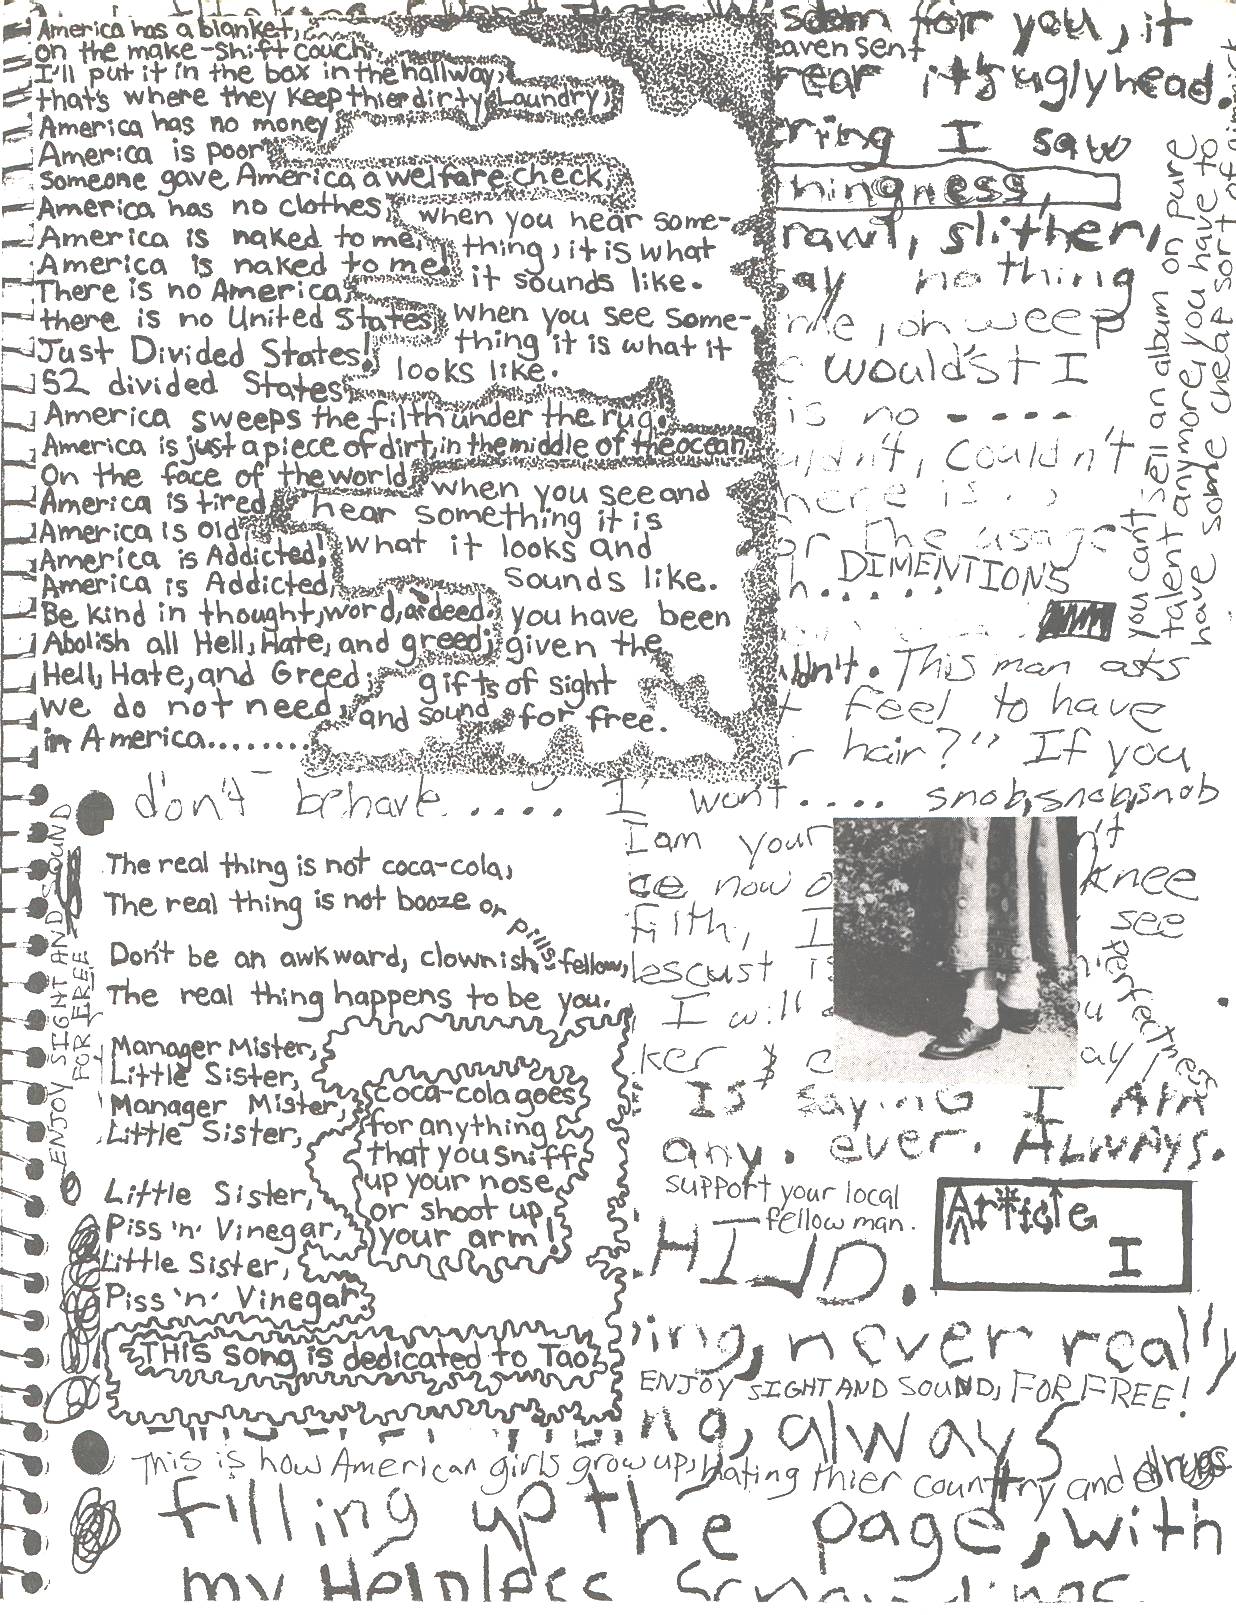 America has a blanket,
on the make-shift couch,
I'll put it in the box in the hallway,
that's where they keep thier dirty Laundry,
America has no money
America is poor
someone gave America a welfare check,
America has no clothes,
America is naked to me,
America is naked to me!
There is no America,
there is no United States,
Just Divided States!
52 divided States,
America sweeps the filth under the rug.
America is just a piece of dirt, in the middle of the ocean,
On the face of the world,
America is tired,
America is old,
America is Addicted!
America is Addicted,
Be kind in thought, word, deed.
Abolish all Hell, Hate, and greed;
Hell, Hate, and Greed;
we do not need,
in America........
when you hear some-
thing, it is what
it sounds like.
when you see some-
thing it is what it
looks like.
when you see and
hear something it is
what it looks and
sounds like.
you have been
given the
gifts of sight
and sound for free.
for you, it
eaven sent
rear it's ugly head.
ring I saw
hingness,
rawl, slither,
ay nothing
me, oh weep
would'st I
is no - - - -
uldn't, couldn't
here is
or The usage
DIMENTIONS
uldn't. This man asks
t feel to have
r hair?" If you
you can't sell an album on pure
talent anymore, you have to
have some cheap sort of gimmick
don't behave.... I won't.... snob, snob, snob
I am your
ce now knee
filth, I see
lescust is
I will
ker ay
perfect
Is saying I Am
any. ever. ALWAYS.
support your local
fellow man.
HILD.
Article
I
ing, never really
ENJOY SIGHT AND SOUND, FOR FREE!
ng, always
ENJOY SIGHT AND SOUND
FOR FREE
The real thing is not coca-cola,
The real thing is not booze or pills
Don't be an awkward, clownish fellow,
The real thing happens to be you.
Manager Mister,
Little Sister,
Manager Mister,
Little Sister,
Little Sister,
Piss 'n' Vinegar,
Little Sister,
Piss 'n' Vinegar.
coca-cola goes
for anything
that you sniff
up your nose
or shoot up
your arm!
THIS song is dedicated to Tao.
This is how American girls grow up, hating thier country and drugs
filling up the page, with
my Helpless